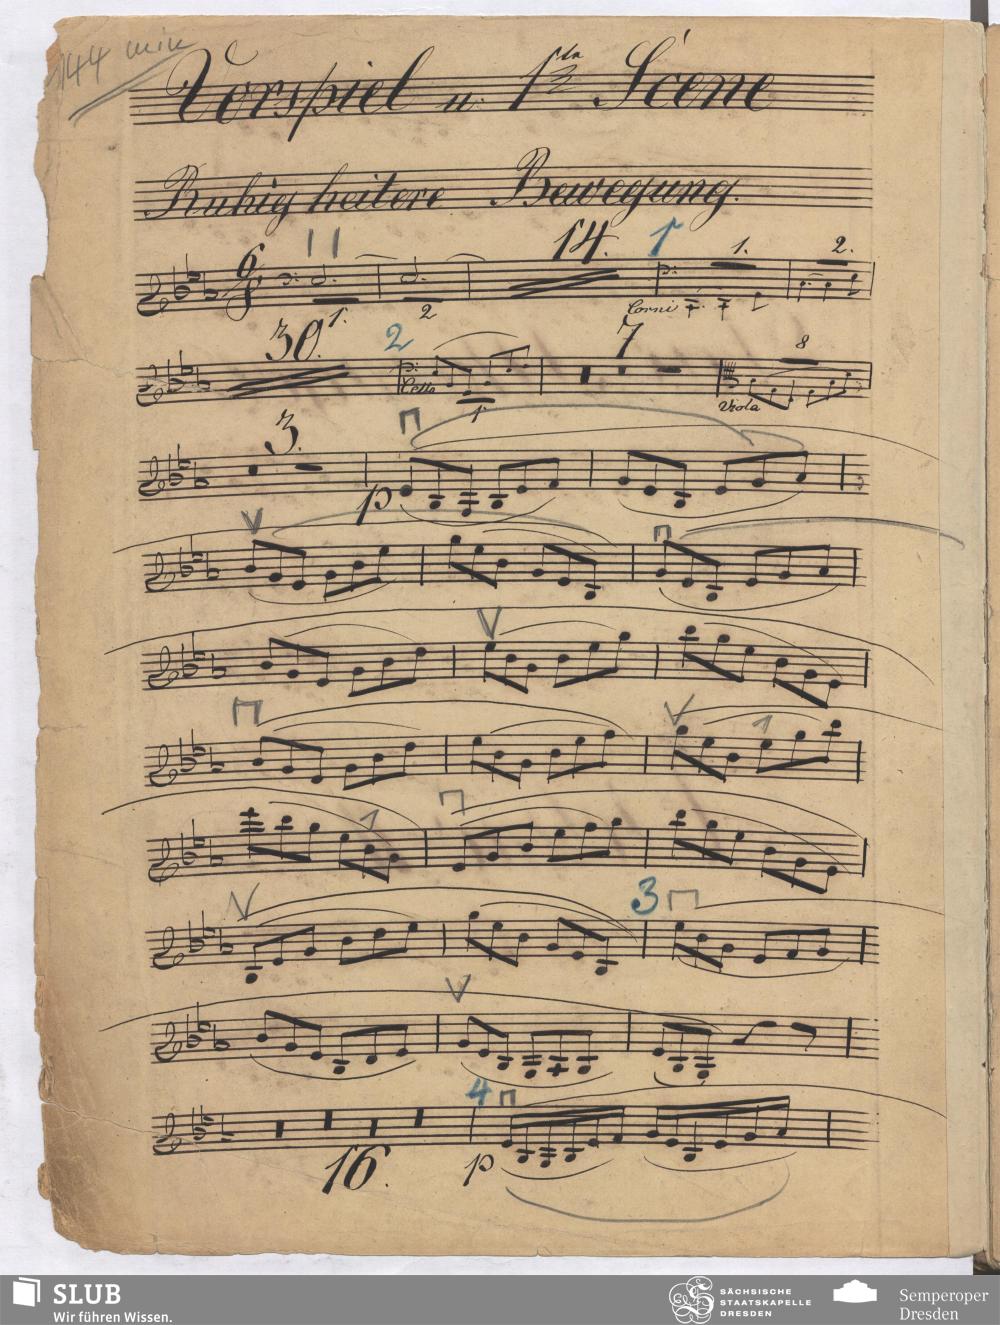 144 min
Vorspiel u. 1ste Scene
Ruhig heitere Bewegung.
6 8 14. 1 1. 2.
1. 2 Corni
30. 2 7 8
Cello 1 Viola
3.
p
1
1
3
4
16. p
SLUB
Wir führen Wissen.
SÄCHSISCHE
STAATSKAPELLE
DRESDEN
Semperoper
Dresden